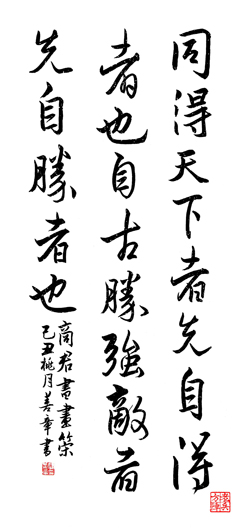 同得天下者先自得
者也自古勝強敵者
先自勝者也
商君書畫策
己丑桃月善章書